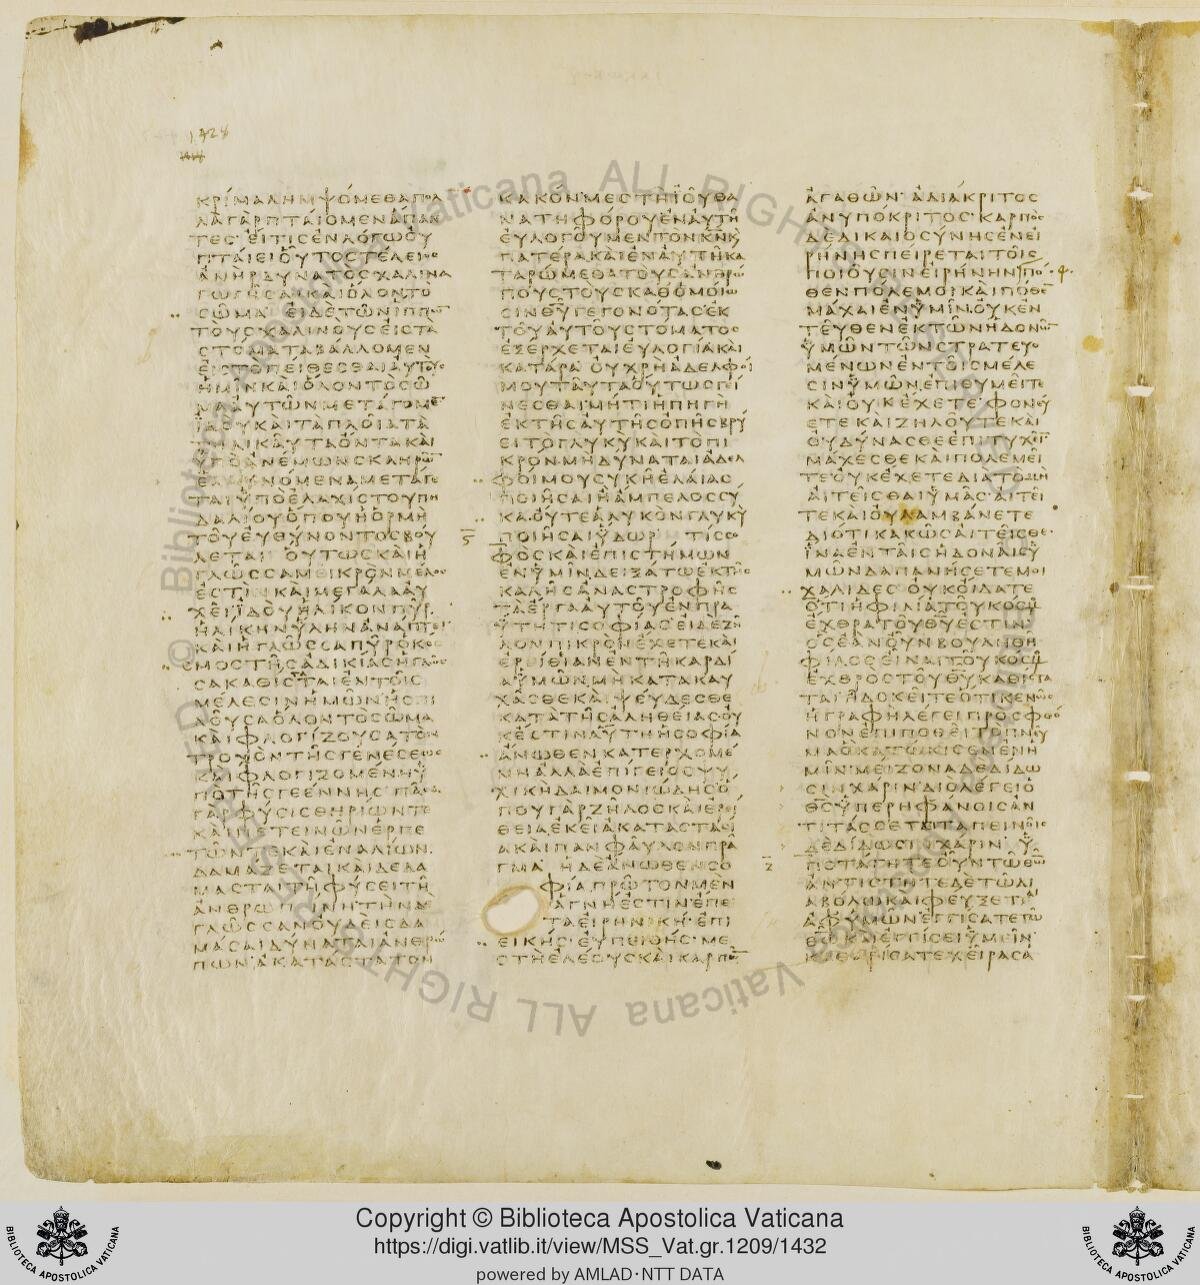 1428
ΚΡΙΜΑΛΗΜΨΟΜΕΘΑΠΟΛ
ΛΑΓΑΡΠΤΑΙΟΜΕΝΑΠΑΝ
ΤΕΣ ΕΙΤΙΣΕΝΛΟΓΩΟΥ
ΠΤΑΙΕΙΟΥΤΟΣΤΕΛΕΙΟΣ
ΑΝΗΡΔΥΝΑΤΟΣΧΑΛΙΝΑ
ΓΩΓΗΣΑΙΚΑΙΟΛΟΝΤΟ
ΣΩΜΑ ΕΙΔΕΤΩΝΙΠΠΩ̅
ΤΟΥΣΧΑΛΙΝΟΥΣΕΙΣΤΑ
ΣΤΟΜΑΤΑΒΑΛΛΟΜΕΝ
ΕΙΣΤΟΠΕΙΘΕΣΘΑΙΑΥΤΟΥΣ
ΗΜΙΝΚΑΙΟΛΟΝΤΟΣΩ
ΜΑΑΥΤΩΝΜΕΤΑΓΟΜΕ̅
ΙΔΟΥΚΑΙΤΑΠΛΟΙΑΤΑ
ΤΗΛΙΚΑΥΤΑΟΝΤΑΚΑΙ
ΥΠΟΑΝΕΜΩΝΣΚΛΗΡΩ̅
ΕΛΑΥΝΟΜΕΝΑΜΕΤΑΓΕ
ΤΑΙΥΠΟΕΛΑΧΙΣΤΟΥΠΗ
ΔΑΛΙΟΥΟΠΟΥΗΟΡΜΗ
ΤΟΥΕΥΘΥΝΟΝΤΟΣΒΟΥ
ΛΕΤΑΙ ΟΥΤΩΣΚΑΙΗ
ΓΛΩΣΣΑΜΕΙΚΡΟΝΜΕΛΟΣ
ΕΣΤΙΝΚΑΙΜΕΓΑΛΑΑΥ
ΧΕΙΙΔΟΥΗΛΙΚΟΝΠΥΡ
ΗΛΙΚΗΝΥΛΗΝΑΝΑΠΤΕΙ
ΚΑΙΗΓΛΩΣΣΑΠΥΡΟΚΟΣ
ΜΟΣΤΗΣΑΔΙΚΙΑΣΗΓΛΩΣ
ΣΑΚΑΘΙΣΤΑΙΕΝΤΟΙΣ
ΜΕΛΕΣΙΝΗΜΩΝΗΣΠΙ
ΛΟΥΣΑΟΛΟΝΤΟΣΩΜΑ
ΚΑΙΦΛΟΓΙΖΟΥΣΑΤΟΝ
ΤΡΟΧΟΝΤΗΣΓΕΝΕΣΕΩΣ
ΚΑΙΦΛΟΓΙΖΟΜΕΝΗΥ
ΠΟΤΗΣΓΕΕΝΝΗΣ ΠΑΣΑ
ΓΑΡΦΥΣΙΣΘΗΡΙΩΝΤΕ
ΚΑΙΠΕΤΕΙΝΩΝΕΡΠΕ
ΤΩΝΤΕΚΑΙΕΝΑΛΙΩΝ
ΔΑΜΑΖΕΤΑΙΚΑΙΔΕΔΑ
ΜΑΣΤΑΙΤΗΦΥΣΕΙΤΗ
ΑΝΘΡΩΠΙΝΗΤΗΝΔΕ
ΓΛΩΣΣΑΝΟΥΔΕΙΣΔΑ
ΜΑΣΑΙΔΥΝΑΤΑΙΑΝΘΡΩ
ΠΩΝ ΑΚΑΤΑΣΤΑΤΟΝ
ΚΑΚΟΝ ΜΕΣΤΗΙΟΥΘΑ
ΝΑΤΗΦΟΡΟΥΕΝΑΥΤΗ
ΕΥΛΟΓΟΥΜΕΝΤΟΝΚ̅Ν̅Κ
ΠΑΤΕΡΑΚΑΙΕΝΑΥΤΗΚΑ
ΤΑΡΩΜΕΘΑΤΟΥΣΑΝΘΡΩ
ΠΟΥΣΤΟΥΣΚΑΘΟΜΟΙΩ
ΣΙΝΘ̅Υ̅ΓΕΓΟΝΟΤΑΣΕΚ
ΤΟΥΑΥΤΟΥΣΤΟΜΑΤΟΣ
ΕΞΕΡΧΕΤΑΙΕΥΛΟΓΙΑΚΑΙ
ΚΑΤΑΡΑ ΟΥΧΡΗΑΔΕΛΦΟΙ
ΜΟΥΤΑΥΤΑΟΥΤΩΣΓΕΙ
ΝΕΣΘΑΙ ΜΗΤΙΗΠΗΓΗ
ΕΚΤΗΣΑΥΤΗΣΟΠΗΣΒΡΥ
ΕΙΤΟΓΛΥΚΥΚΑΙΤΟΠΙ
ΚΡΟΝ ΜΗΔΥΝΑΤΑΙΑΔΕΛ
ΦΟΙΜΟΥΣΥΚΗΕΛΑΙΑΣ
ΠΟΙΗΣΑΙΗΑΜΠΕΛΟΣΣΥ
ΚΑ ΟΥΤΕΑΛΥΚΟΝΓΛΥΚΥ
ΠΟΙΗΣΑΙΥΔΩΡ ΤΙΣΣΟ
ΦΟΣΚΑΙΕΠΙΣΤΗΜΩΝ
ΕΝΥΜΙΝ ΔΕΙΞΑΤΩΕΚΤΗΣ
ΚΑΛΗΣΑΝΑΣΤΡΟΦΗΣ
ΤΑΕΡΓΑΑΥΤΟΥΕΝΠΡΑ
ΥΤΗΤΙΣΟΦΙΑΣΕΙΔΕΖΗ
ΛΟΝΠΙΚΡΟΝΕΧΕΤΕΚΑΙ
ΕΡΙΘΙΑΝΕΝΤΗΚΑΡΔΙ
ΑΥΜΩΝ ΜΗΚΑΤΑΚΑΥ
ΧΑΣΘΕΚΑΙΨΕΥΔΕΣΘΕ
ΚΑΤΑΤΗΣΑΛΗΘΕΙΑΣΟΥ
ΚΕΣΤΙΝΑΥΤΗΗΣΟΦΙΑ
ΑΝΩΘΕΝΚΑΤΕΡΧΟΜΕ
ΝΗΑΛΛΑΕΠΙΓΕΙΟΣΨΥ
ΧΙΚΗΔΑΙΜΟΝΙΩΔΗΣΟ
ΠΟΥΓΑΡΖΗΛΟΣΚΑΙΕΡΙ
ΘΕΙΑΕΚΕΙΑΚΑΤΑΣΤΑΣΙ
ΑΚΑΙΠΑΝΦΑΥΛΟΝΠΡΑ
ΓΜΑ ΗΔΕΑΝΩΘΕΝΣΟ
ΦΙΑΠΡΩΤΟΝΜΕΝ
ΑΓΝΗΕΣΤΙΝΕΠΕ
ΤΑΕΙΡΗΝΙΚΗ ΕΠΙ
ΕΙΚΗΣ ΕΥΠΕΙΘΗΣ ΜΕ
ΣΤΗΕΛΕΟΥΣΚΑΙΚΑΡΠΩ̅
ΑΓΑΘΩΝ ΑΔΙΑΚΡΙΤΟΣ
ΑΝΥΠΟΚΡΙΤΟΣ ΚΑΡΠΟΣ
ΔΕΔΙΚΑΙΟΣΥΝΗΣΕΝΕΙ
ΡΗΝΗΣΠΕΙΡΕΤΑΙΤΟΙΣ
ΠΟΙΟΥΣΙΝΕΙΡΗΝΗΝ ΠΟ
ΘΕΝΠΟΛΕΜΟΙΚΑΙΠΟΘΕ̅
ΜΑΧΑΙΕΝΥΜΙΝ ΟΥΚΕΝ
ΤΕΥΘΕΝΕΚΤΩΝΗΔΟΝΩ̅
ΥΜΩΝΤΩΝΣΤΡΑΤΕΥΟ
ΜΕΝΩΝΕΝΤΟΙΣΜΕΛΕ
ΣΙΝΥΜΩΝ ΕΠΙΘΥΜΕΙΤΕ
ΚΑΙΟΥΚΕΧΕΤΕ ΦΟΝΕΥ
ΕΤΕΚΑΙΖΗΛΟΥΤΕΚΑΙ
ΟΥΔΥΝΑΣΘΕΕΠΙΤΥΧΕΙ̅
ΜΑΧΕΣΘΕΚΑΙΠΟΛΕΜΕΙ
ΤΕΟΥΚΕΧΕΤΕΔΙΑΤΟΜΗ
ΑΙΤΕΙΣΘΑΙΥΜΑΣ ΑΙΤΕΙ
ΤΕΚΑΙΟΥΛΑΜΒΑΝΕΤΕ
ΔΙΟΤΙΚΑΚΩΣΑΙΤΕΙΣΘΕ
ΙΝΑΕΝΤΑΙΣΗΔΟΝΑΙΣΥ
ΜΩΝΔΑΠΑΝΗΣΕΤΕΜΟΙ
ΧΑΛΙΔΕΣ ΟΥΚΟΙΔΑΤΕ
ΟΤΙΗΦΙΛΙΑΤΟΥΚΟΣΜΟΥ
ΕΧΘΡΑΤΟΥΘ̅Υ̅ΕΣΤΙΝ
ΟΣΕΑΝΟΥΝΒΟΥΛΗΘΗ
ΦΙΛΟΣΕΙΝΑΙΤΟΥΚΟΣΜΟΥ
ΕΧΘΡΟΣΤΟΥΘ̅Υ̅ΚΑΘΙΣΤΑ
ΤΑΙ ΗΔΟΚΕΙΤΕΟΤΙΚΕΝΩΣ
ΗΓΡΑΦΗΛΕΓΕΙΠΡΟΣΦΘΟ
ΝΟΝΕΠΙΠΟΘΕΙΤΟΠΝΕΥ
ΜΑΟΚΑΤΩΚΙΣΕΝΕΝΗ
ΜΙΝ ΜΕΙΖΟΝΑΔΕΔΙΔΩ
ΣΙΝΧΑΡΙΝΔΙΟΛΕΓΕΙΟ
Θ̅Σ̅ΥΠΕΡΗΦΑΝΟΙΣΑΝ
ΤΙΤΑΣΣΕΤΑΙΤΑΠΕΙΝΟΙΣ
ΔΕΔΙΔΩΣΙΝΧΑΡΙΝ Υ
ΠΟΤΑΓΗΤΕΟΥΝΤΩΘΕΩ
ΑΝΤΙΣΤΗΤΕΔΕΤΩΔΙ
ΑΒΟΛΩΚΑΙΦΕΥΞΕΤΑΙ
ΑΦΥΜΩΝΕΓΓΙΣΑΤΕΤΩ
Θ̅Ω̅ΚΑΙΕΓΓΙΣΕΙΥΜΕΙΝ
ΚΑΘΑΡΙΣΑΤΕΧΕΙΡΑΣΑ
Copyright © Biblioteca Apostolica Vaticana
https://digi.vatlib.it/view/MSS_Vat.gr.1209/1432
powered by AMLAD·NTT DATA